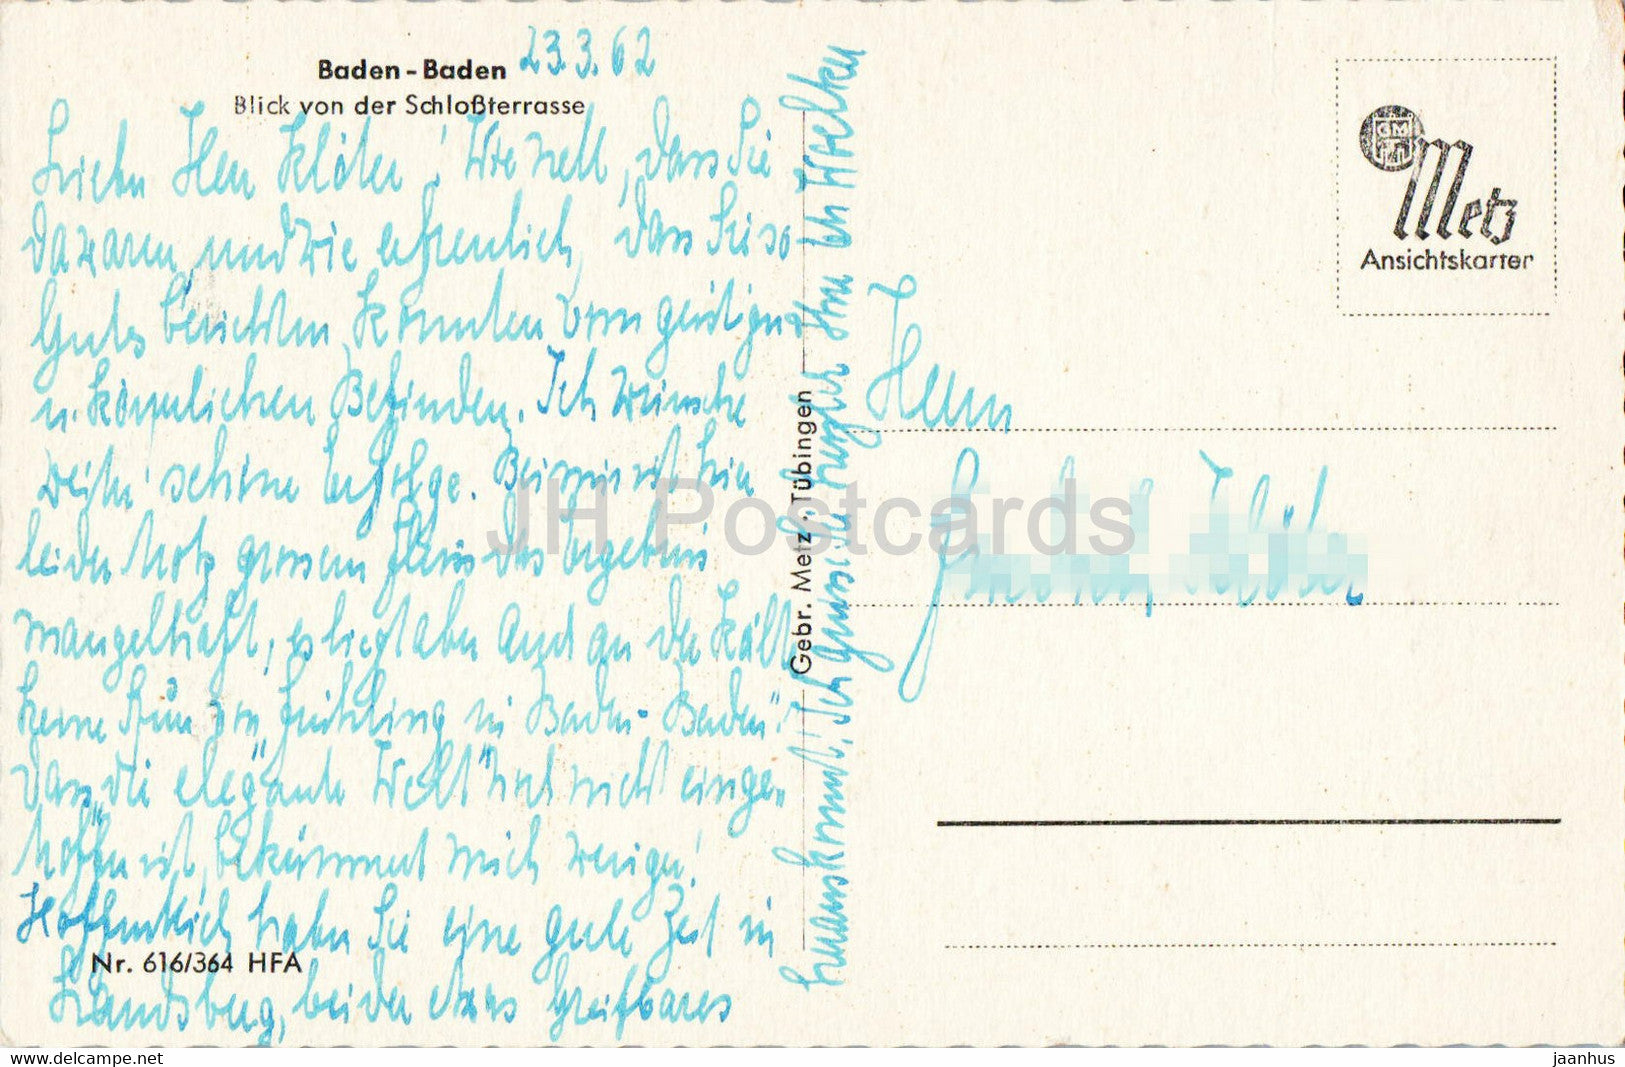 Baden-Baden 23.3.62
Blick von der Schloßterrasse
Lieber Herr Klöter! Wie nett, dass Sie
da waren, und wie erfreulich, dass Sie so
Gutes berichten konnten vom geistigen
u. körperlichen Befinden. Ich wünsche
weiter schöne Erfolge. Bei mir ist hier
leider trotz grossem Fleiss das Ergebnis
mangelhaft, es liegt aber auch an der Kälte
keine Spur von "Frühling in Baden-Baden"!
Dass "die elegante Welt" noch nicht einge-
troffen ist, bekümmert mich weniger!
Hoffentlich haben Sie eine gute Zeit in
Landsberg, bei der etwas Greifbares
herauskommt. Ich grüsse Sie herzlich Ihre
Herrn
Gebr. Metz · Tübingen
Nr. 616/364 HFA
GM
Metz
Ansichtskarten
JH Postcards
www.delcampe.net
jaanhus